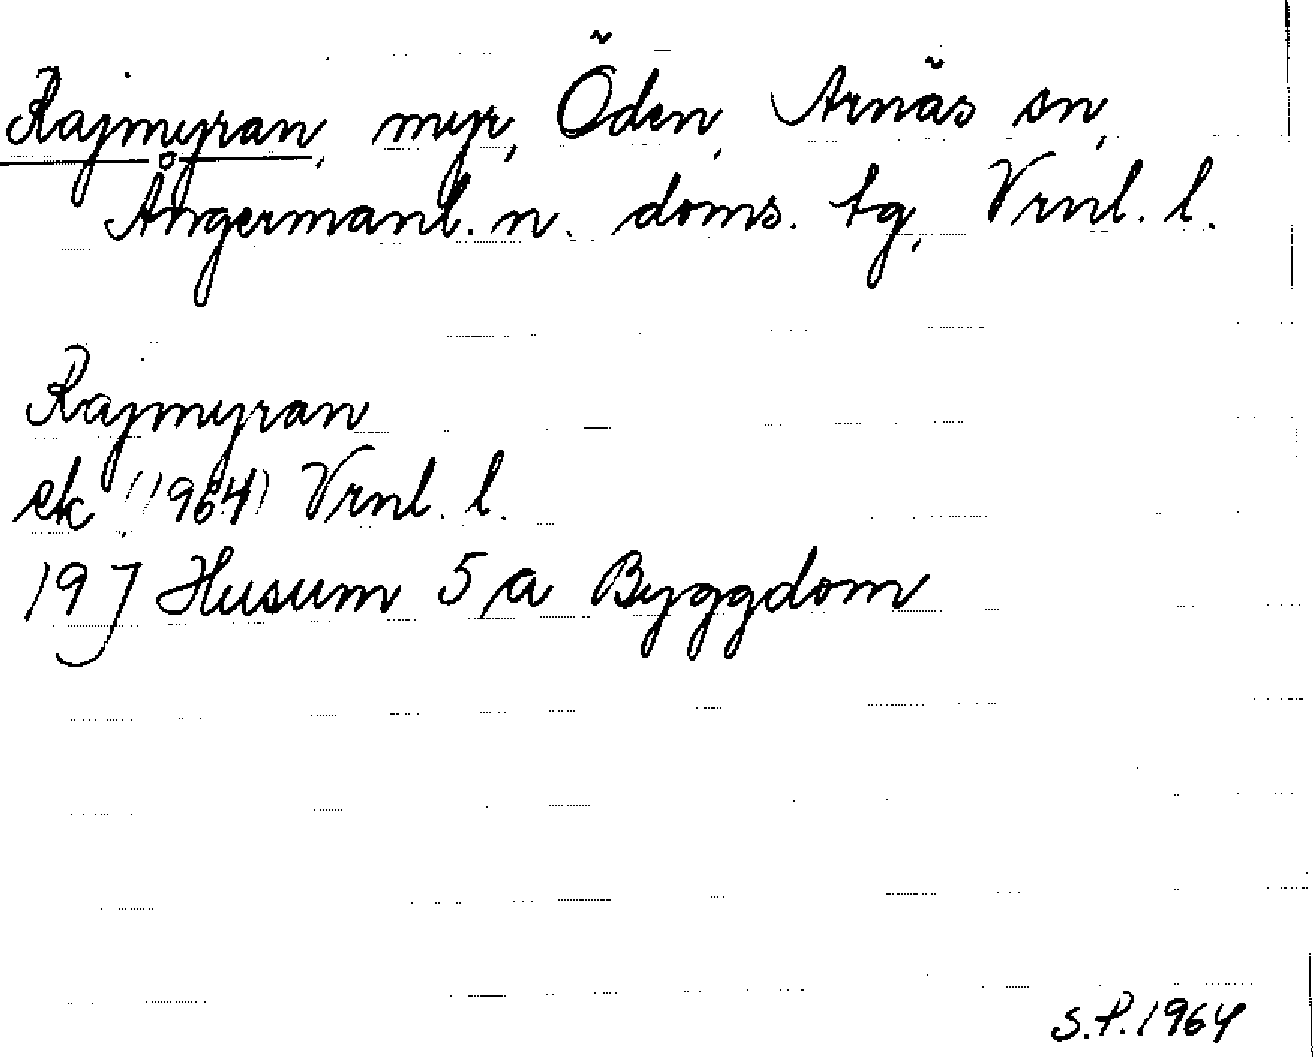 Rajmyran, myr, Öden, Arnäs sn,
Ångermanl. n. doms. tg, Vrnl. l.
Rajmyran
ek (1964) Vrnl. l.
19 J Husum 5 a Byggdom
S.P. 1964